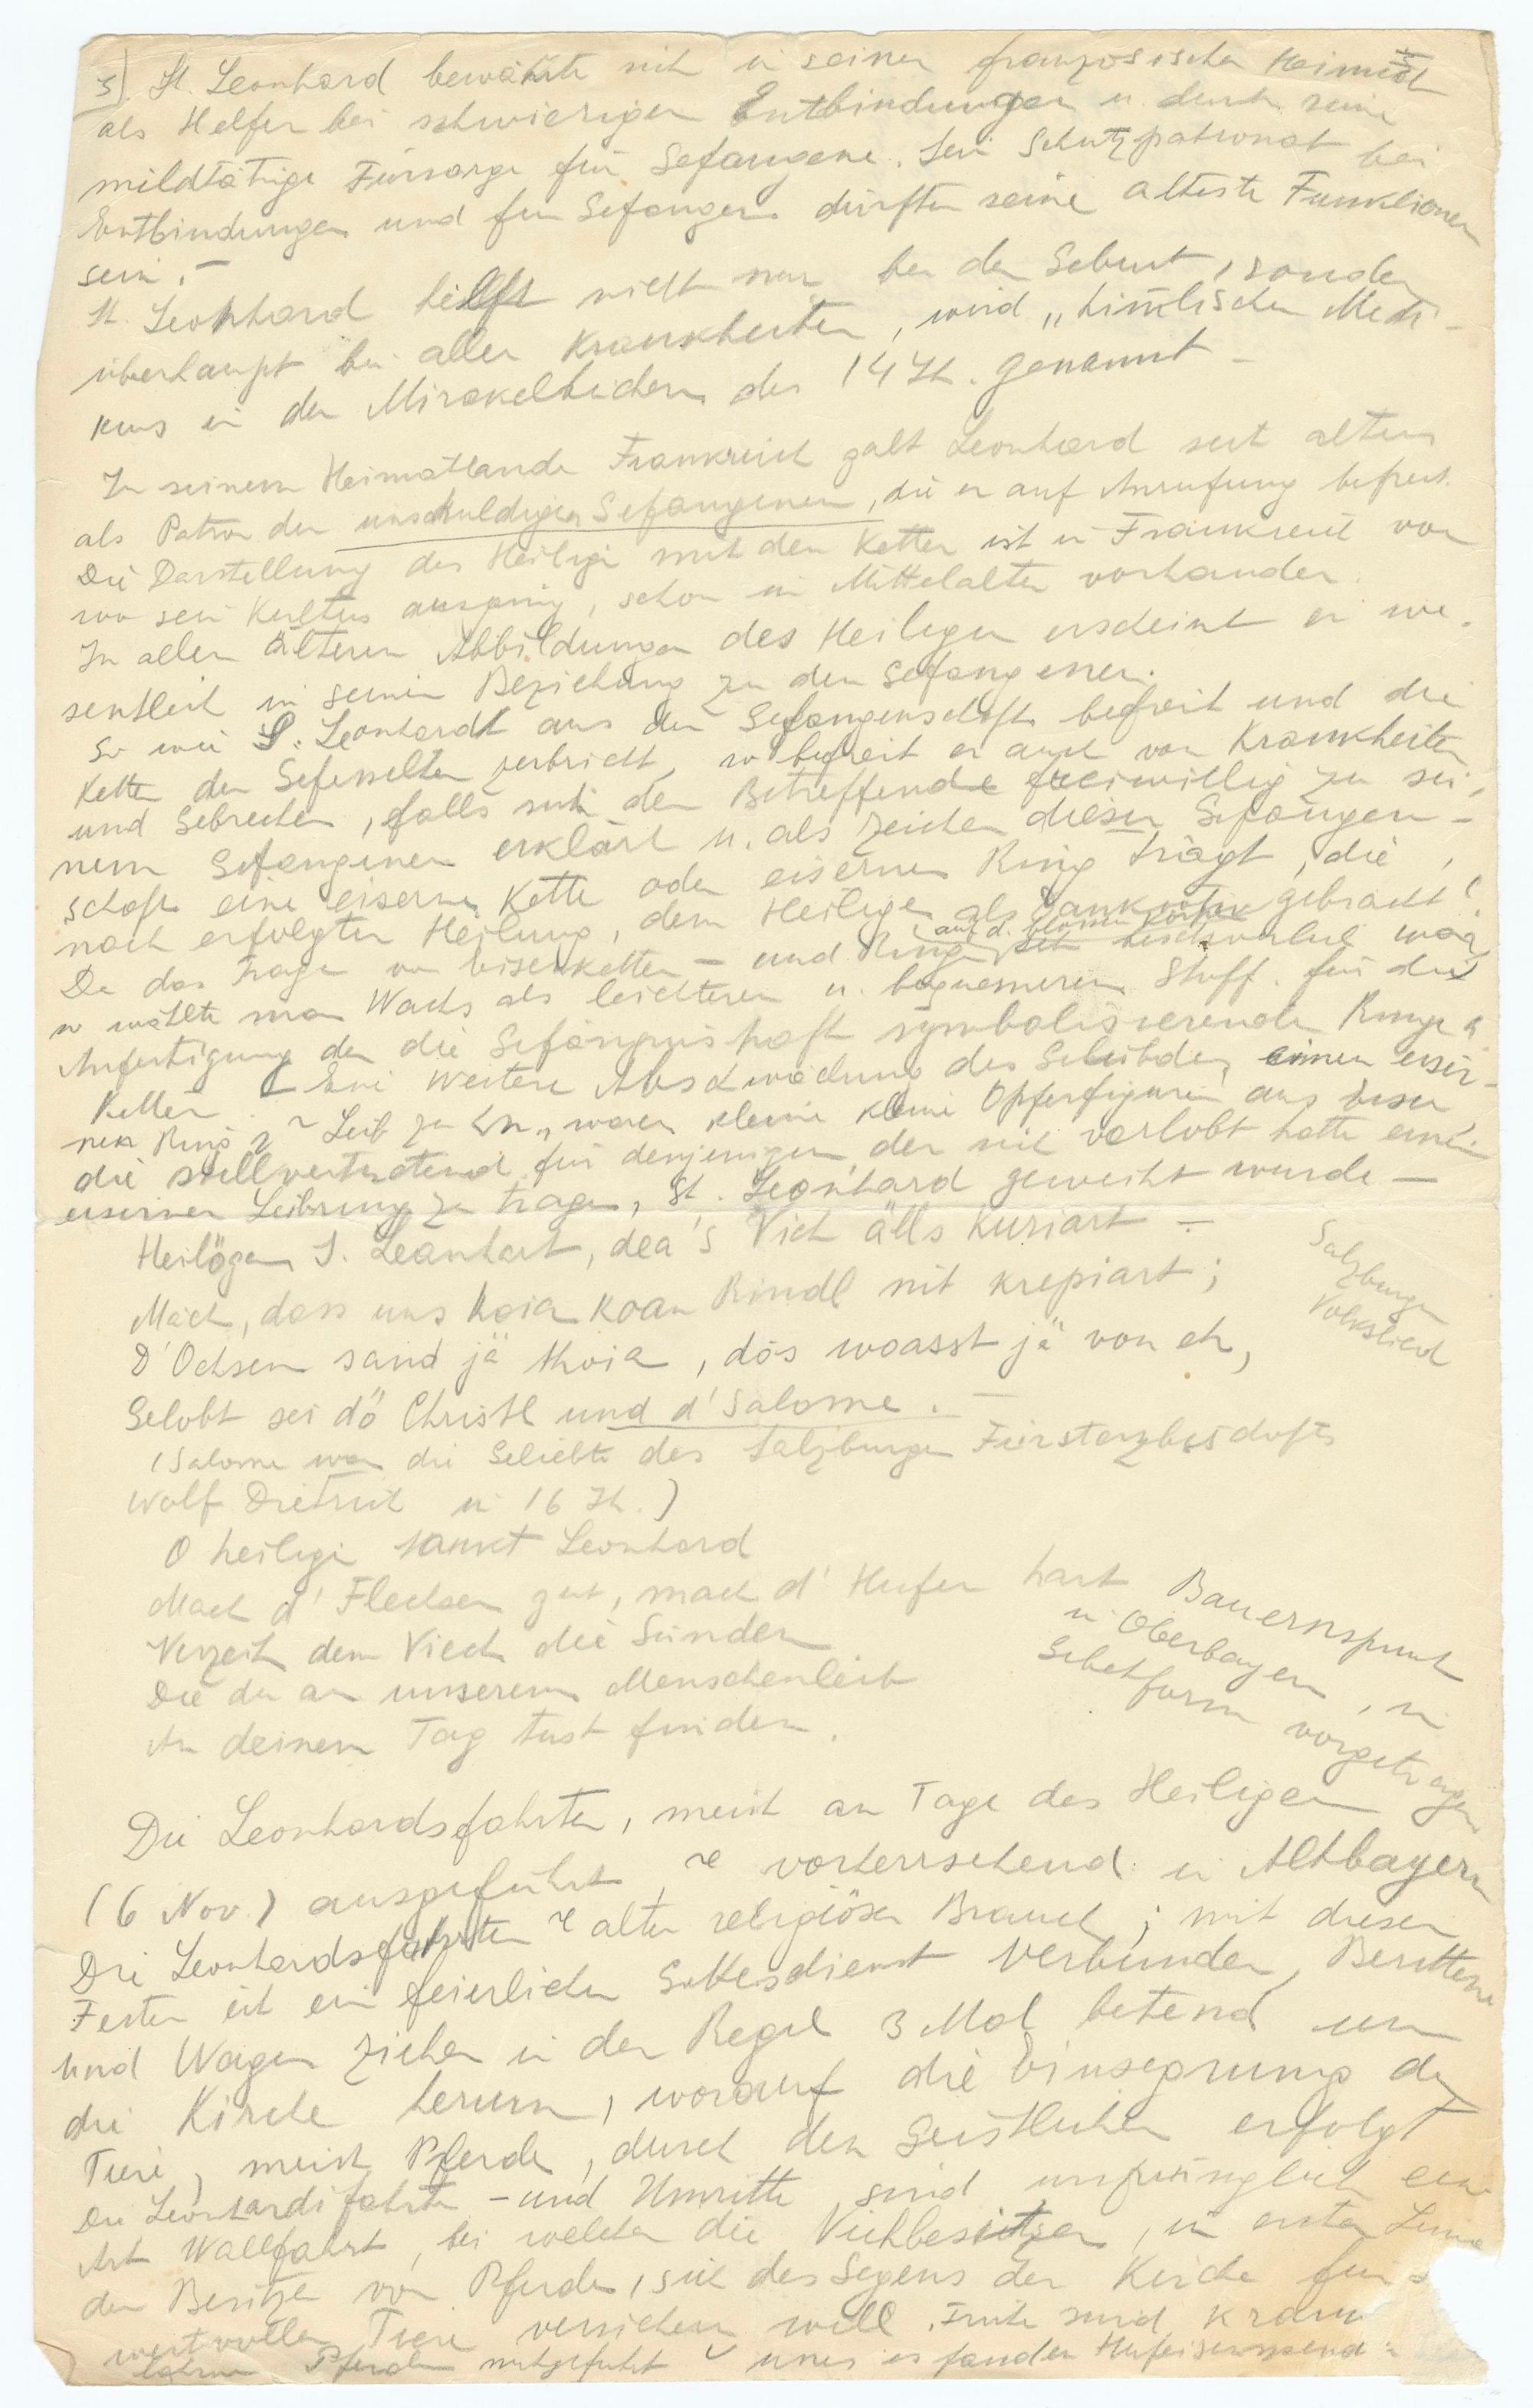 5) St. Leonhard bewährte sich in seiner französischen Heimat
als Helfer bei schwierigen Entbindungen u. durch seine
mildtätige Fürsorge für Gefangene. Sein Schutzpatronat bei
Entbindungen und für Gefangene dürften seine älteste Funktionen
sein. –
St. Leonhard hilft nicht nur bei der Geburt, sondern
überhaupt bei allen Krankheiten, wird „himlischer Medi-
kus in den Mirakelbüchern des 14 Jh. genannt –
In seinem Heimatlande Frankreich galt Leonhard seit alters
als Patron der unschuldigen Gefangenen, die er auf Anrufung befreit.
Die Darstellung des Heiligen mit den Ketten ist in Frankreich von
wo sein Kultus ausging, schon im Mittelalter vorhanden.
In allen älteren Abbildungen des Heiligen erscheint er we-
sentlich in seiner Beziehung zu den Gefangenen.
So wie S. Leonhard aus der Gefangenschaft befreit und die
Ketten der Gefesselten zerbricht, so befreit er auch von Krankheiten
und Gebrechen, falls sich der Betreffende freiwillig zu sei-
nem Gefangenen erklärt u. als Zeichen dieser Gefangen-
schaft eine eiserne Kette oder eisernen Ring trägt, die,
nach erfolgter Heilung, dem Heiligen als gebracht
Da das Tragen von Eisenketten – und Ringen auf d. blossen Körper beschwerlich war,
so wählte man Wachs als leichteren u. bequemeren Stoff. für die
Anfertigung der die Gefängnishaft symbolisierende Ringe u.
Ketten. Eine weitere Abschwächung des Gelübdes, einen eiser-
nen Ring Leib zu waren kleine kleine Opferfiguren aus Eisen
die stellvertretend für denjenigen der sich verlobt hatte einen
eisernen Leibring zu tragen, St. Leonhard geweiht wurde –
Heilögen S. Leanhart, dea's Vich älls kuriart –
Mäch, dass uns koia koan Rindl nit krepiart;
D'Ochsen sand jä thoia, dös woasst jä von eh,
Gelobt sei dö Christl und d'Salome. –
Salzburger
Volkslied
(Salome war die Geliebte des Salzburger Fürsterzbischofs
Wolf Dietrich im 16 Jh.)
O heiliger Sankt Leonhard
Mach d'Flechsen gut, mach d'Hufen hart
Verzeih dem Viech die Sünden
Die du an unserem Menschenleib
An deinem Tag tust finden.
Bauernspruch
in Oberbayern, in
Gebetform vorgetragen
Die Leonhardsfahrten, meist am Tage des Heiligen
(6 Nov.) ausgeführt, vorherrschend in Altbayern
Die Leonhardsfahrten alter religiöser Brauch; mit diesen
Festen ist ein feierlicher Gottesdienst verbunden, Berittene
und Wagen ziehen in der Regel 3 Mal betend um
die Kirche herum, worauf die Einsegnung der
Tiere, meist Pferde, durch den Geistlichen erfolgt
Die Leonhardifahrten – und Umritte sind ursprünglich eine
Art Wallfahrt, bei welchen die Viehbesitzer, in erster Linie
der Besitzer von Pferden, sich des Segens der Kirche für s
wertvollen Tiere versichern will. Früher sind
lahme Pferde mitgeführt es fanden Hufeisenspend